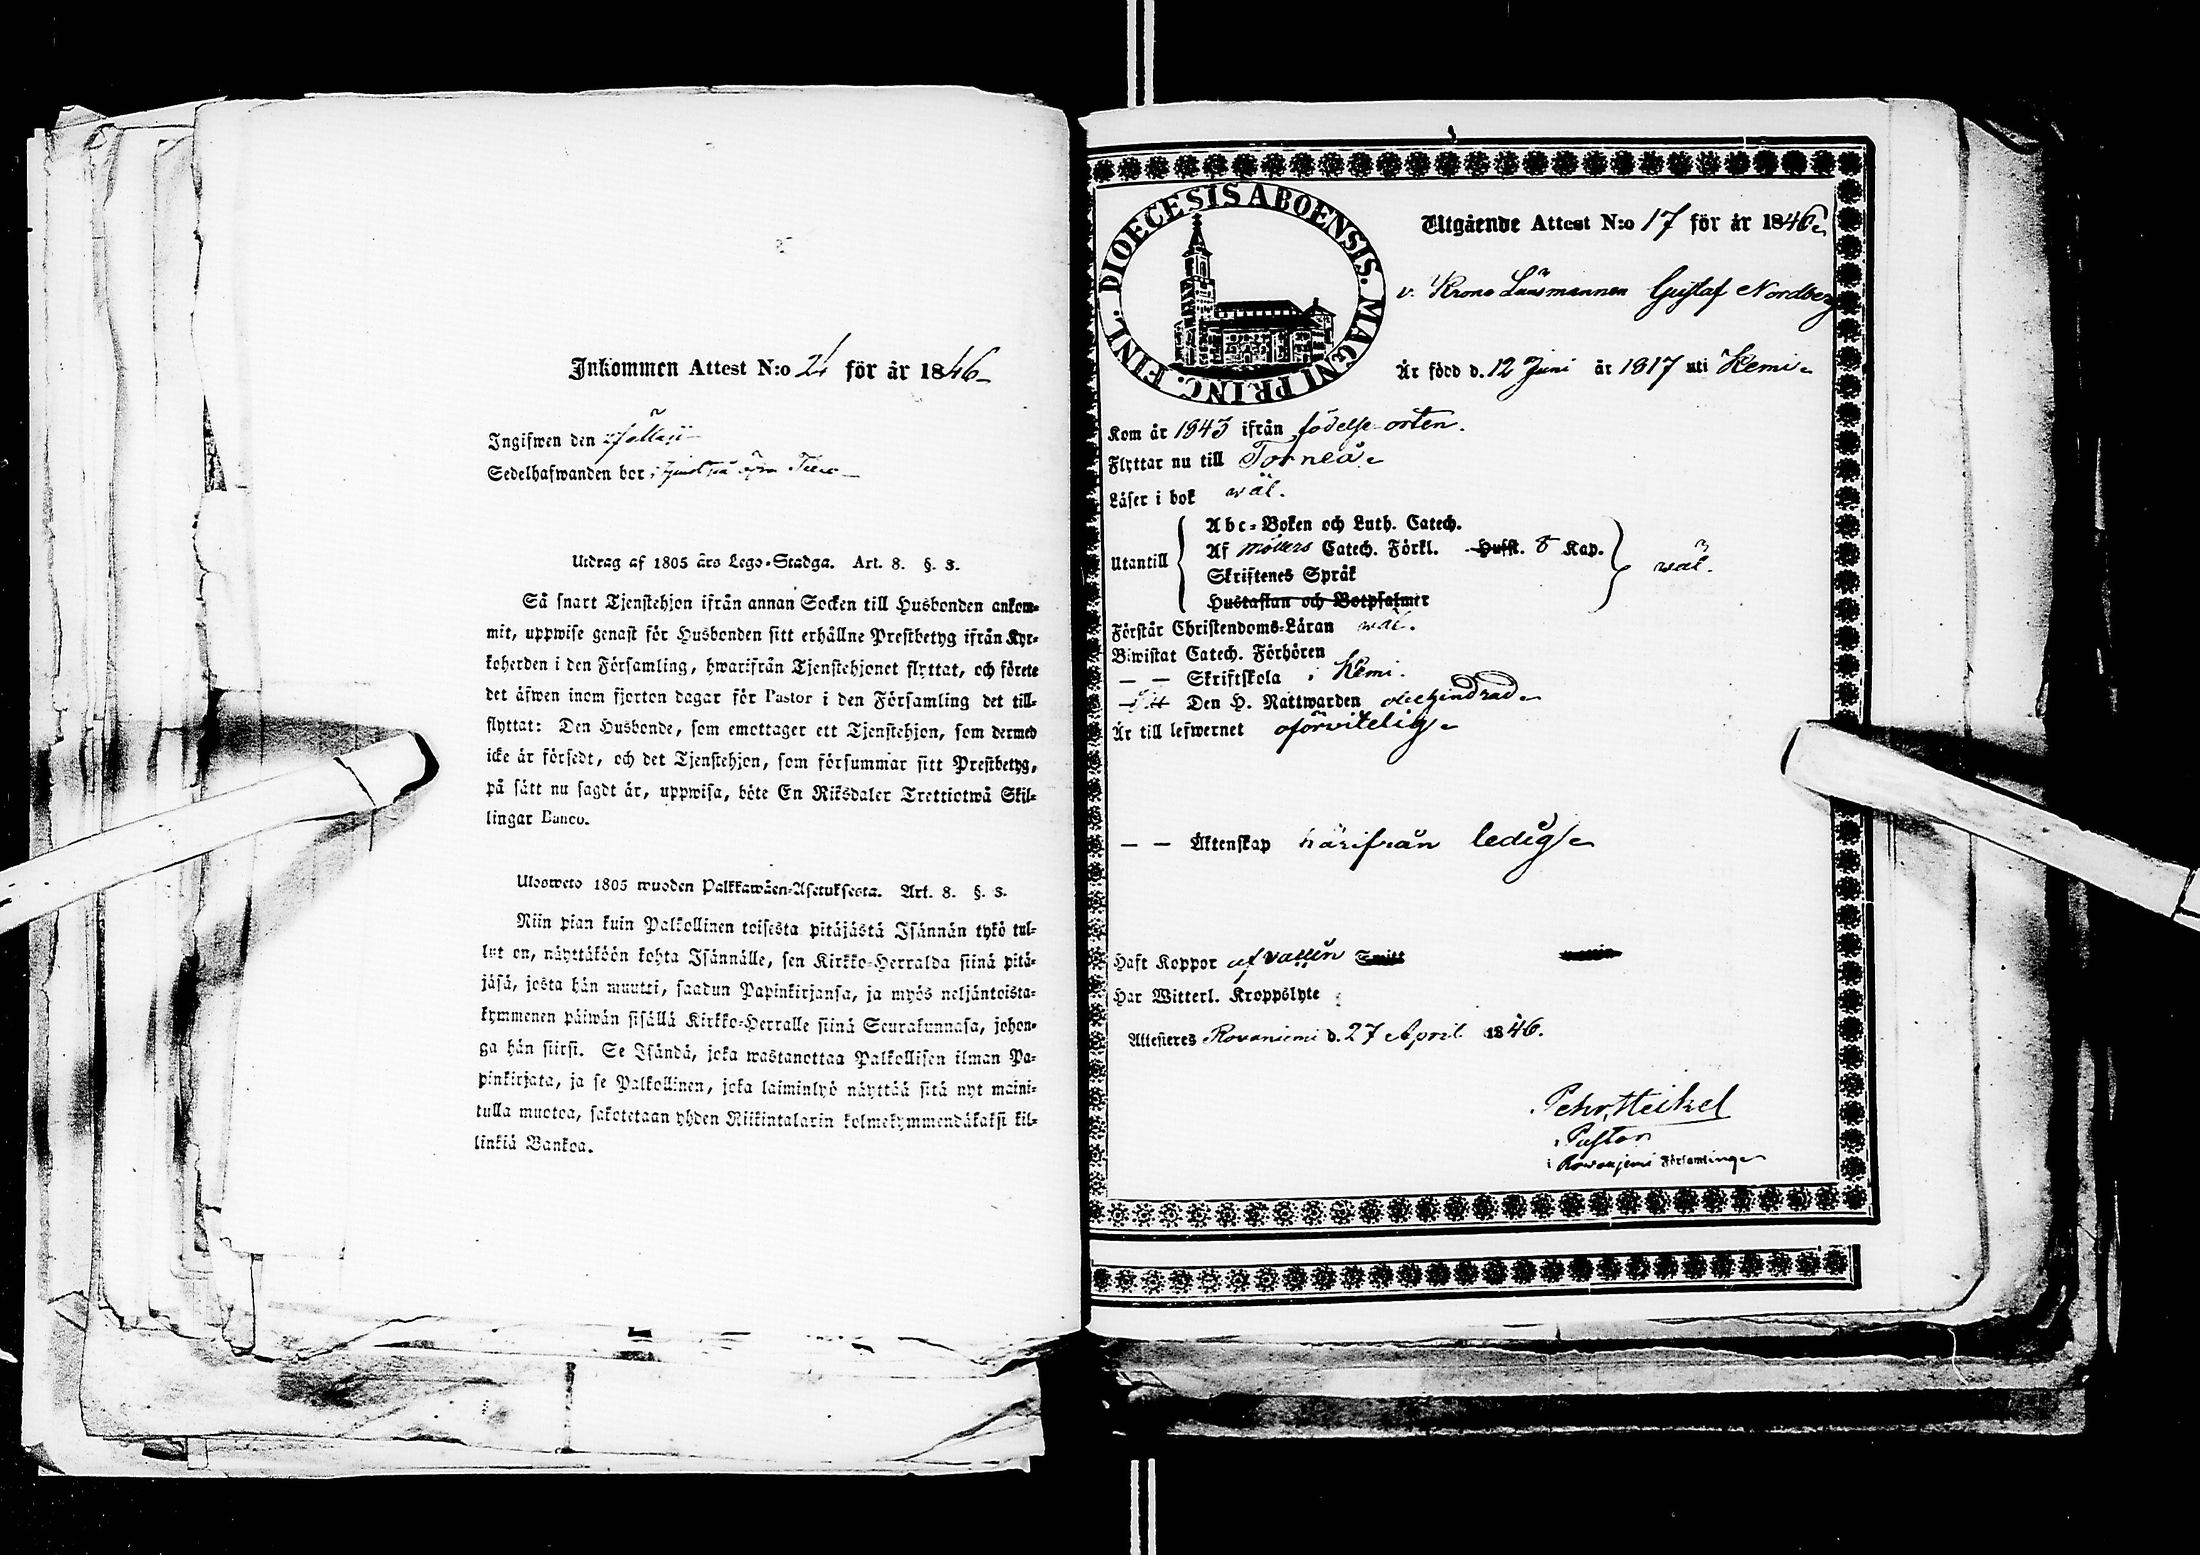 Inkommen Attest N:o 24 för år 1846
Ingifwen den
Sedelhafwanden bor i
Utdrag af 1805 års Lego-Stadga. Art. 8. §. 3.
Så snart Tjenstehjon ifrån annan Socken till Husbonden ankom-
mit, uppwise genast för Husbonden sitt erhållne Prestbetyg ifrån Kyr-
koherden i den Församling, hwarifrån Tjenstehjonet flyttat, och förete
det äfwen inom fjorton dagar för Pastor i den Församling det till-
flyttat: Den Husbonde, som emottager ett Tjenstehjon, som dermed
icke är försedt, och det Tjenstehjon, som försummar sitt Prestbetyg,
på sätt nu sagdt är, uppwisa, böte En Riksdaler Trettiotwå Skil-
lingar Banco.
Ulosweto 1805 wuoden Palkkawäen-Asetuksesta. Art. 8. §. 3.
Niin pian kuin Palkollinen toisesta pitäjästä Isännän tykö tul-
lut on, näyttäköön kohta Isännälle, sen Kirkko-Herralda siinä pitä-
jäsä, josta hän muutti, saadun Papinkirjansa, ja myös neljäntoista-
kymmenen päiwän sisällä Kirkko-Herralle siinä Seurakunnasa, johon-
ga hän siirsi. Se Isändä, joka wastanottaa Palkollisen ilman Pa-
pinkirjata, ja se Palkollinen, joka laiminlyö näyttää sitä nyt maini-
tulla muotoa, sakotetaan yhden Riikintalarin kolmekymmendäkaksi kil-
linkiä Bankoa.
DIOECESIS ABOENSIS. MAGNI PRINC. FINL.
Utgående Attest N:o 17 för år 1846
v. Krono Länsmannen Gustaf Nordberg
Är född d. 12 Juni år 1817 uti Kemi
Kom år 1843 ifrån födelse-orten.
Flyttar nu till Torneå
Läser i bok wäl.
Utantill
Abc-Boken och Luth. Catech.
Af Möllers Catech. Förkl. Huffl. 8 Kap.
Skriftenes Språk
Hustaflan och Botpsalmer
wäl.
Förstår Christendoms-Läran wäl.
Biwistat Catech. Förhören
— — Skriftskola i Kemi.
Den H. Nattwarden obehindrad
Är till lefwernet oförvitelig
— — Äktenskap härifrån ledig
Haft Koppor af vaccin
Har Witterl. Kroppslyte
Attesteres Rovaniemi d. 27 April 1846.
Pehr Heikel
Pastor
i Rovaniemi Församling